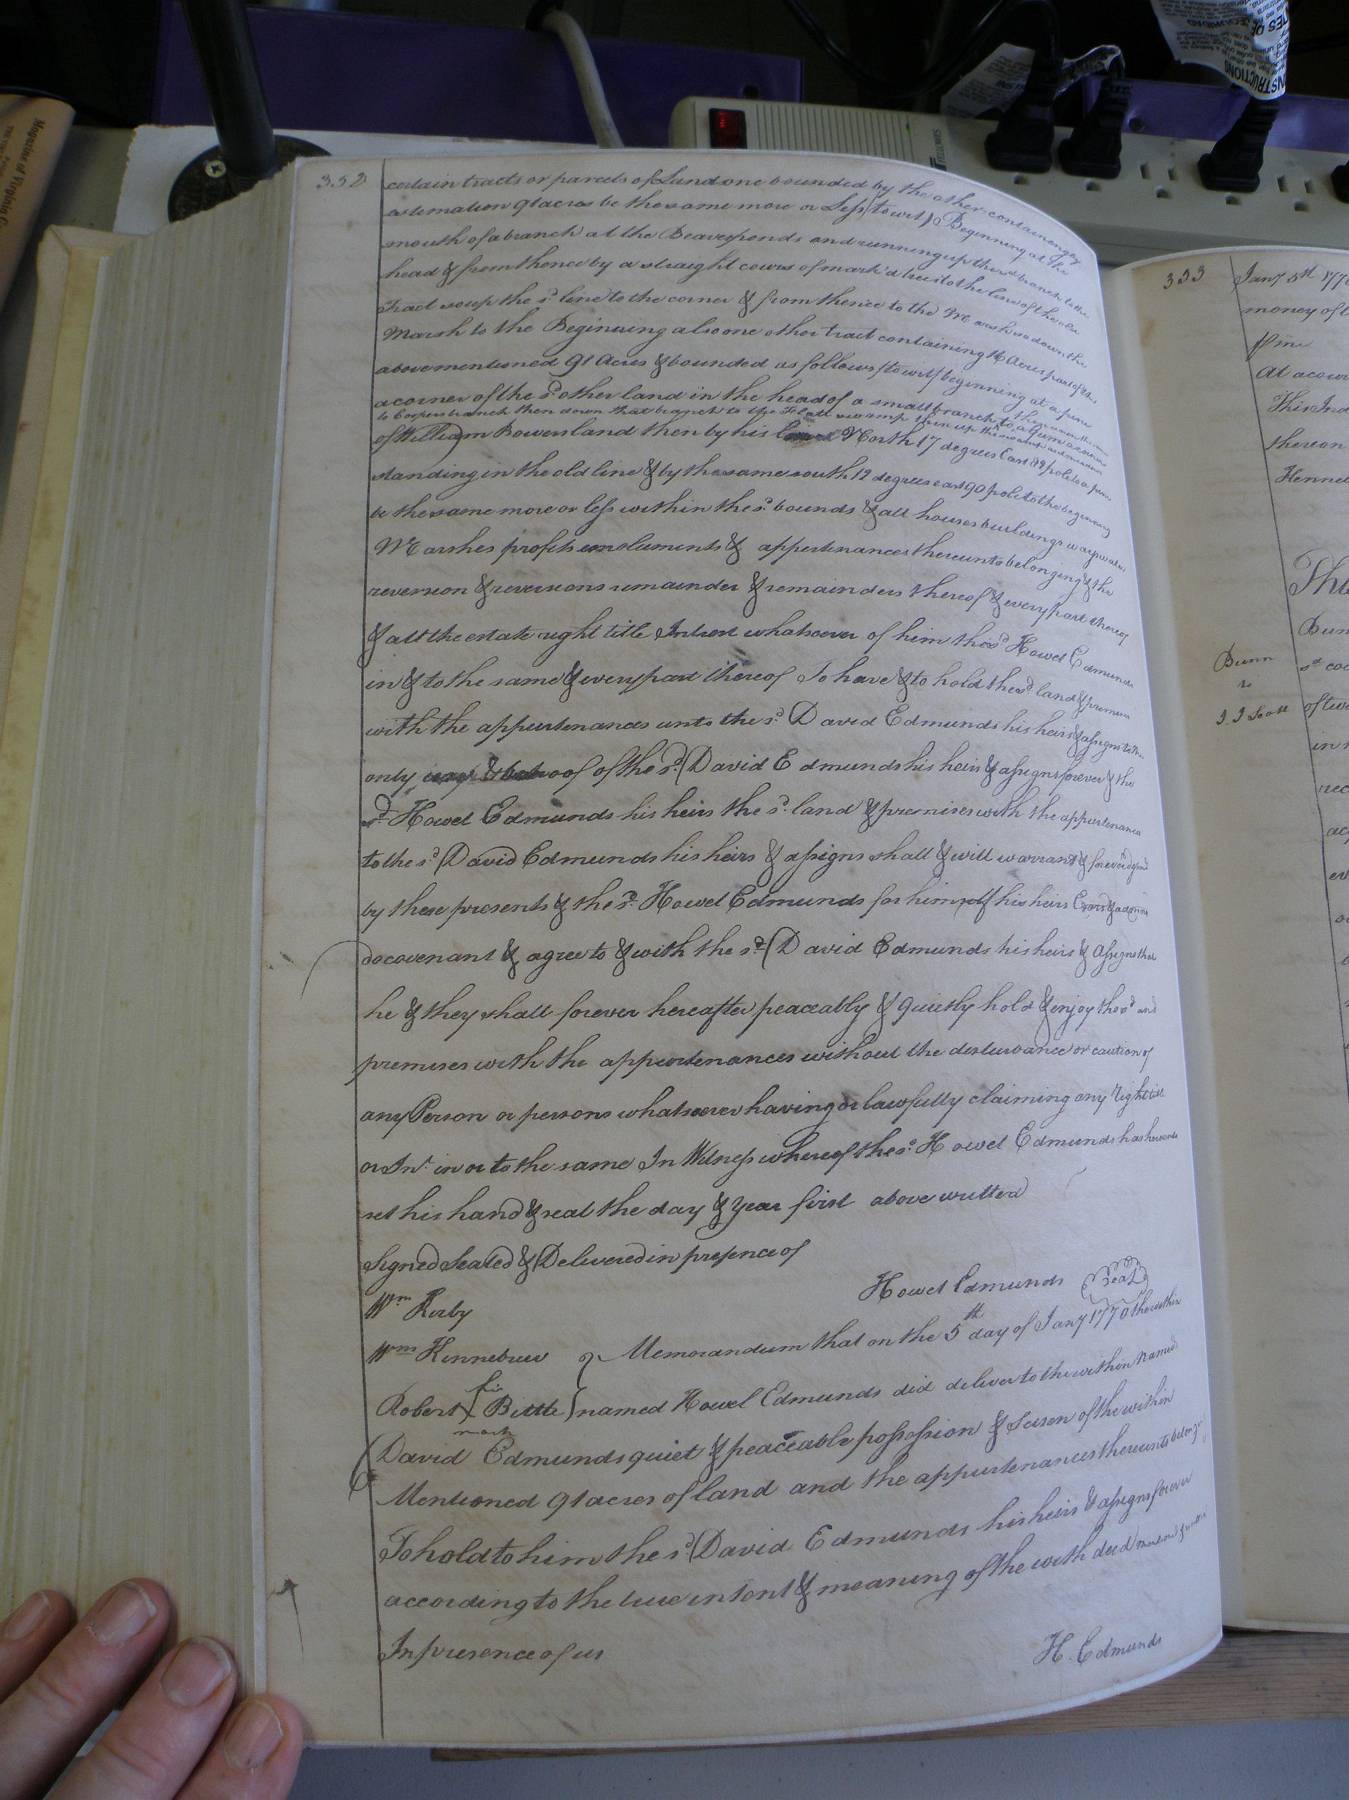 Magazine of Virginia G
NSTRUCTIONS
FELLOWES
332
certain tracts or parcels of Land one bounded by the other containing by
estemation 91 acres be the same more or Less (to wit) Beginning at the
mouth of a branch at the Beaverponds and running up the sd branch to the
head & from thence by a straight cours of mark'd trees to the line of the old
Tract so up the sd line to the corner & from thence to the Marsh so down the
Marsh to the Beginning also one other tract containing 16 Acres part of the
abovementioned 91 Acres & bounded as follows (to wit) beginning at a pine
a corner of the sd other land in the head of a small branch
to Coopers branch then down that branch to the Flatt swamp then up the
of William Bowers land then by his North 17 degrees East 89 pole to a pine
standing in the old line & by the same south 12 degrees east 90 pole to the beginning
be the same more or less within the sd bounds & all houses buildings ways water
Marshes profits emoluments & appertenances thereunto belonging & the
reversion & reversions remainder & remainders thereof & every part thereof
& all the estate right title Intrest whatsoever of him the sd Howel Edmunds
in & to the same & every part thereof To have & to hold the sd land & premises
with the appurtenances unto the sd David Edmunds his heirs & assigns to the
only use & behoof of the sd David Edmunds his heirs & assigns forever & the
sd Howel Edmunds his heirs the sd land & premises with the appurtenances
to the sd David Edmunds his heirs & assigns shall & will warrant & forever defend
by these presents & the sd Howel Edmunds for himself his heirs Exors & admin
do covenant & agree to & with the sd David Edmunds his heirs & Assigns that
he & they shall forever hereafter peaceably & quietly hold & enjoy the sd and
premises with the appurtenances without the disturbance or caution of
any Person or persons whatsoever having or lawfully claiming any Right title
or Int in or to the same In Witness whereof the sd Howel Edmunds has hereunto
set his hand & seal the day & year first above written
Signed Sealed & Delivered in presence of
Howel Edmunds Seal
Wm Kirby
Wm Kinnebrew Memorandum that on the 5th day of Jany 1770 the within
Robert his Bittle named Howel Edmunds did deliver to the within Named
mark
David Edmunds quiet & peaceable possession & Seisen of the within
Mentioned 91 acres of land and the appurtenances thereunto belong
To hold to him the sd David Edmunds his heirs & assigns forever
according to the true intent & meaning of the with deed
In presence of us
H. Edmunds
333
Jany 5th 177
money of
pine
At a cour
This Ind
thereon
Kenne
Bunn
to
J. J Scott
of tw
in
rec